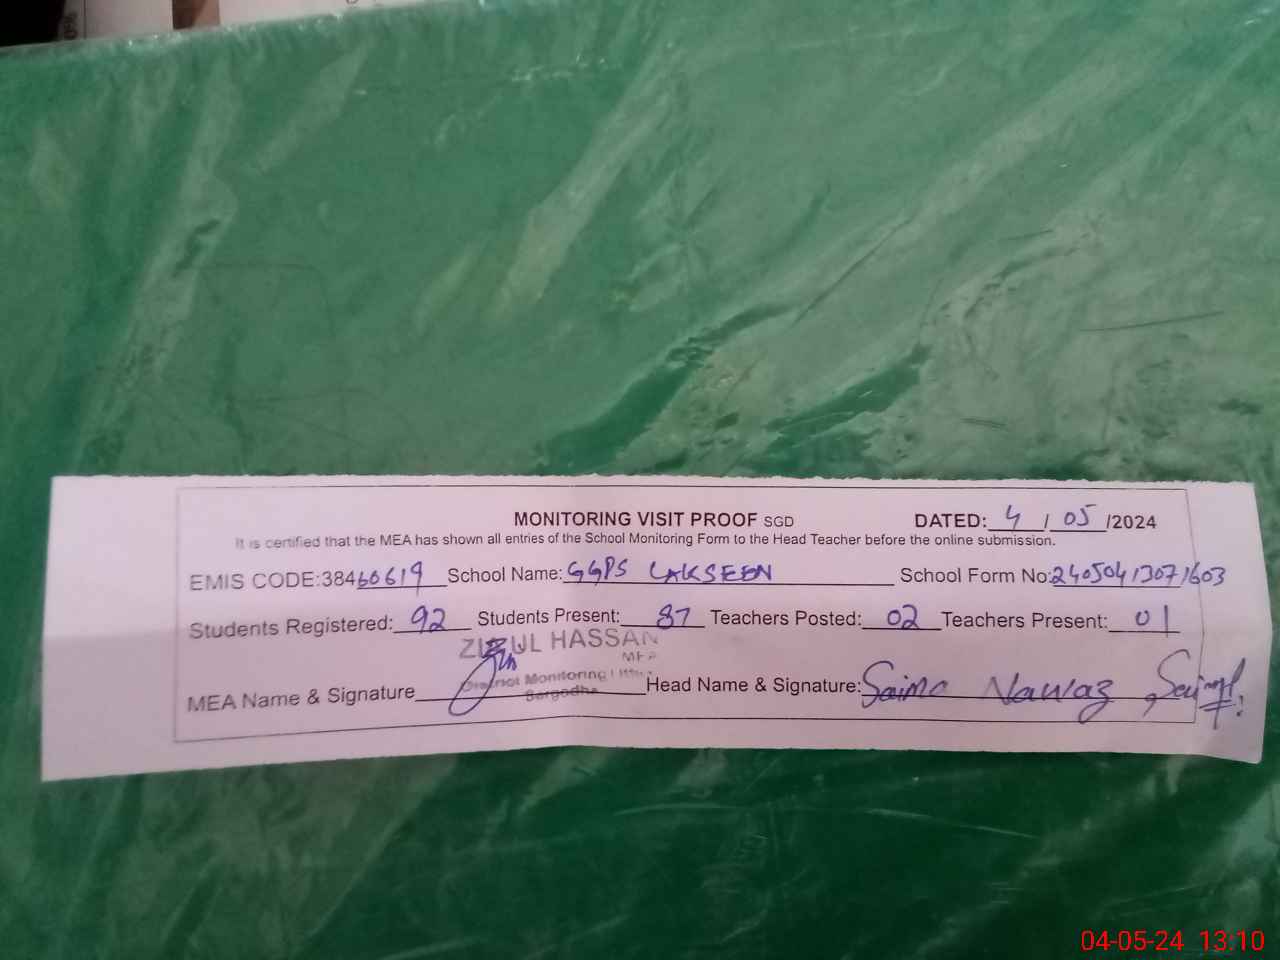 MONITORING VISIT PROOF SGD DATED: 4 / 05 /2024
It is certified that the MEA has shown all entries of the School Monitoring Form to the Head Teacher before the online submission.
EMIS CODE:38460619 School Name: GGPS LAKSEEN School Form No:24050413071603
Students Registered: 92 Students Present: 87 Teachers Posted: 02 Teachers Present: 01
HASSAN
MEA
District Monitoring
Sargodha
MEA Name & Signature Head Name & Signature: Saima Nawaz
04-05-24 13:10